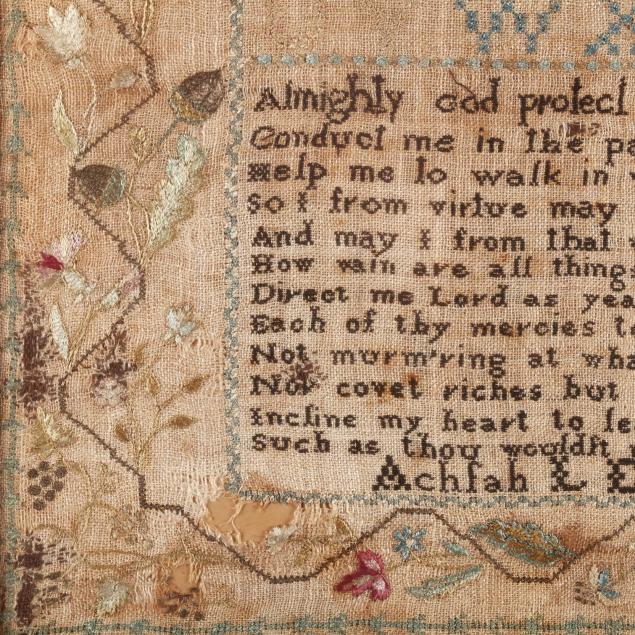 Almighty God protect
Conduct me in the pa
Help me to walk in
So I from virtue may
And may I from that
How vain are all thing
Direct me Lord as yea
Each of thy mercies t
Not murm'ring at wha
Nor covet riches but
Incline my heart to le
Such as thou wouldst
Achsah L E